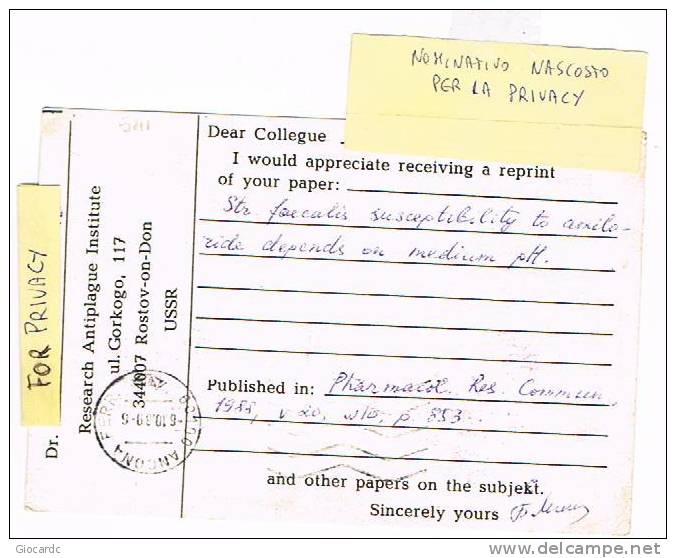 NOMINATIVO NASCOSTO
PER LA PRIVACY
Dear Collegue
I would appreciate receiving a reprint
of your paper:
Str. faecalis susceptibility to amilo-
ride depends on medium pH.
Published in: Pharmacol. Res. Commun.
1988, v 20, p 853.
and other papers on the subjekt.
Sincerely yours
FOR PRIVACY
Dr.
Research Antiplague Institute
ul. Gorkogo, 117
344007 Rostov-on-Don
USSR
ANCONA
Giocardc
delcampe.net